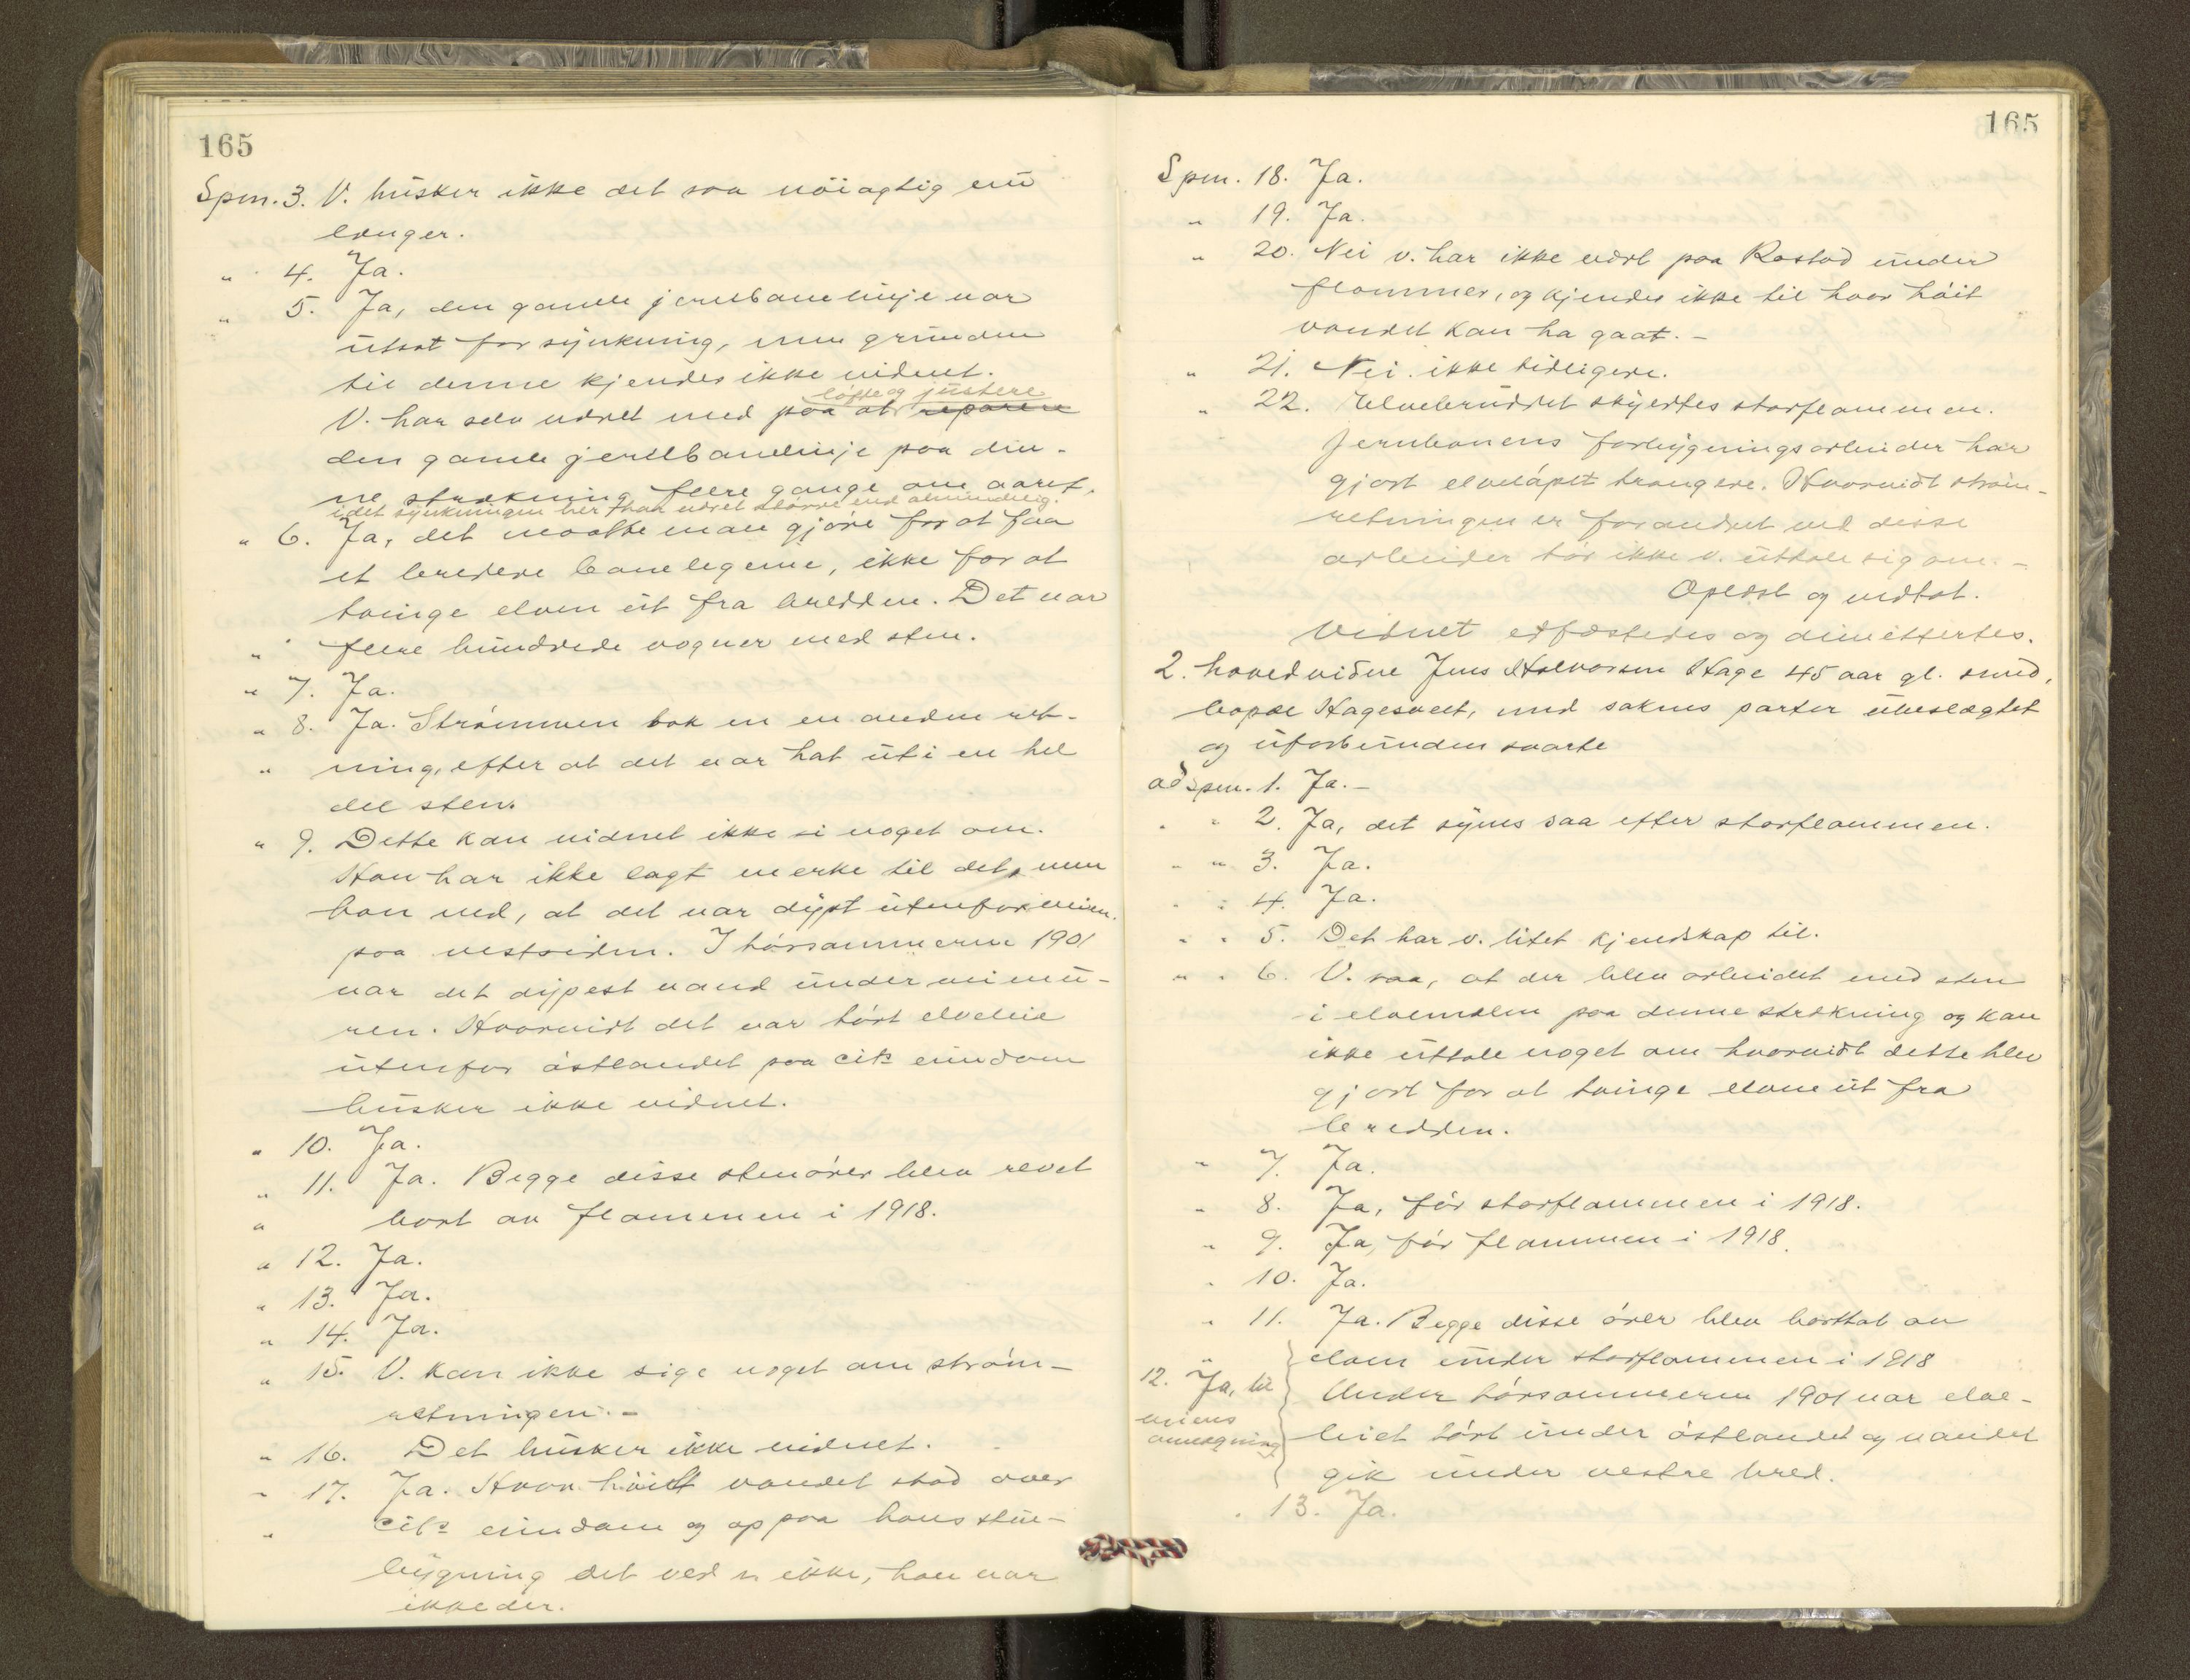 165
Spm. 3. V. husker ikke det saa nöiagtig nu
længer.
" 4. Ja.
" 5. Ja, den gamle jernbanelinje var
utsat for synkning, men grunden
til denne kjendes ikke vidnet.
løfte og justere
V. har selv været med paa at reparere
den gamle jernbanelinje paa den-
ne strækning flere gange om aaret,
idet synkningen her har været større end almindelig.
" 6. Ja, det maatte man gjøre for at faa
et bredere banelegeme, ikke for at
tvinge elven ut fra bredden. Det var
" flere hundrede vogner med sten.
" 7. Ja.
" 8. Ja. Strømmen tok en en anden ret-
" ning, efter at det var hat ut i en hel
del sten.
" 9. Dette kan vidnet ikke si noget om.
Han har ikke lagt merke til det, men
han ved, at det var dypt utenfor veien
paa vestsiden. I tørsommeren 1901
var det dypest vand under veimu-
ren. Hvorvidt det var tørt elveleie
utenfor østlandet paa cits eiendom
husker ikke vidnet.
" 10. Ja.
" 11. Ja. Begge disse stenører blev revet
" bort av flommen i 1918.
" 12. Ja.
" 13. Ja.
" 14. Ja.
" 15. V. kan ikke sige noget om strøm-
retningen. -
" 16. Det husker ikke vidnet.
" 17. Ja. Hvor höit vandet stod over
" cits eiendom og op paa hans stue-
bygning det ved v. ikke, han var
ikke der.
165
Spm. 18. Ja.
" 19. Ja.
" 20. Nei v. har ikke været paa Rostad under
flommer, og kjendes ikke til hvor høit
vandet kan ha gaat. -
" 21. Nei ikke tidligere.
" 22. Elvebruddet skyldtes storflommen.
Jernbanens forbygningsarbeider har
gjort elveløpet trangere. Hvorvidt strøm-
retningen er forandret ved disse
arbeider tør ikke v. uttale sig om. -
Oplæst og vedtat.
Vidnet edfæstedes og dimittertes.
2. hovedvidne Jens Halvorsen Hage 45 aar gl. smed,
bopæl Hagesvelt, med sakens parter ubeslægtet
og uforbunden svarte
ad spm. 1. Ja. -
" " 2. Ja, det synes saa efter storflommen.
" " 3. Ja.
" " 4. Ja.
" " 5. Det har v. litet kjendskap til.
" " 6. V. saa, at der blev arbeidet med sten
i elvemælen paa denne strækning og kan
ikke uttale noget om hvorvidt dette blev
gjort for at tvinge elven ut fra
bredden.
" 7. Ja.
" 8. Ja, før storflommen i 1918.
" 9. Ja, før flommen i 1918.
" 10. Ja.
" 11. Ja. Begge disse ører blev borttat av
" elven under storflommen i 1918
12. Ja, til
veiens
omlægning
Under tørsommeren 1901 var elve-
leiet tørt under østlandet og vandet
gik under vestre bred.
" 13. Ja.